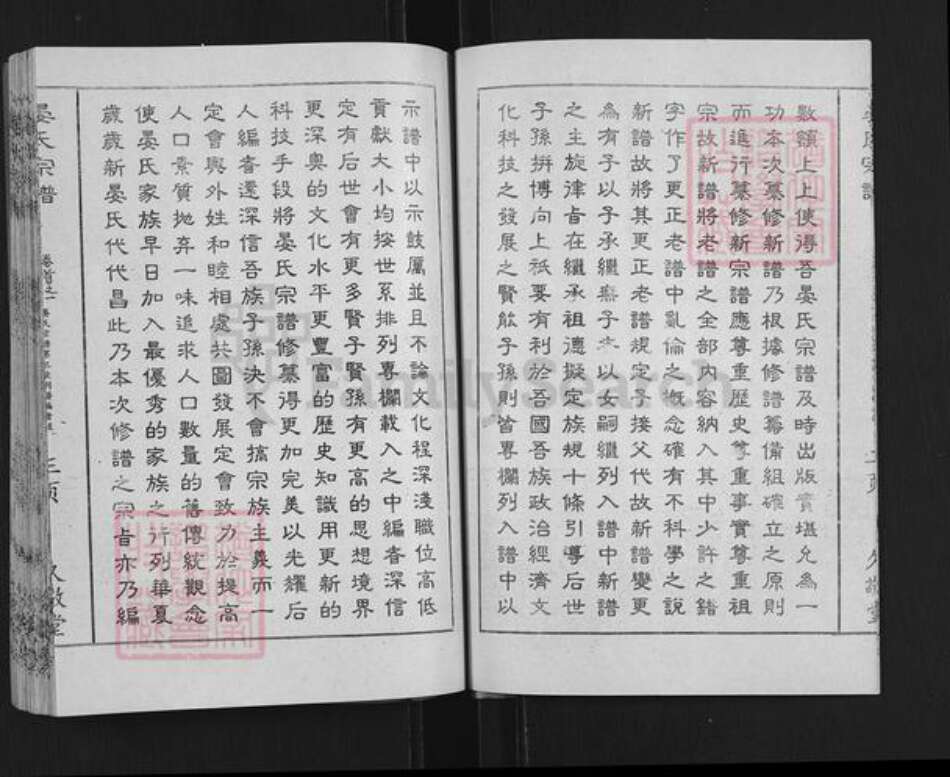 數額上上使得吾晏氏宗譜及時出版實堪允為一
功本次纂修新譜乃根據修譜籌備組確立之原則
而進行纂修新宗譜應尊重歷史尊重事實尊重祖
宗故新譜將老譜之全部內容納入其中少許之錯
字作了更正老譜中亂倫之概念確有不科學之說
新譜故將其更正老譜規定子接父代故新譜變更
為有子以子承繼無子者以女嗣繼列入譜中新譜
之主旋律旨在繼承祖德擬定族規十條引導后世
子孫拼博向上祇要有利於吾國吾族政治經濟文
化科技之發展之賢能子孫則皆專欄列入譜中以
二頁
久敬堂
示譜中以示鼓厲並且不論文化程深淺職位高低
貢獻大小均按世系排列專欄載入之中編者深信
定有后世會有更多賢子賢孫有更高的思想境界
更深奧的文化水平更豐富的歷史知識用更新的
科技手段將晏氏宗譜修纂得更加完美以光耀后
人編者還深信吾族子孫決不會搞宗族主義而一
定會與外姓和睦相處共圖發展定會致力於提高
人口素質拋弃一味追求人口數量的舊傳統觀念
使晏氏家族早日加入最優秀的家族之行列華夏
歲歲新晏氏代代昌此乃本次修譜之宗旨亦乃編
晏氏宗譜
卷首之一
三頁
久敬堂
FamilySearch